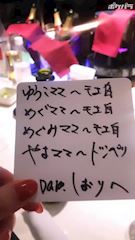 ゆうこママへ モエ白
めぐママへ モエ白
めぐみママへ モエ白
やまママへ ドンペリ
しおりへ